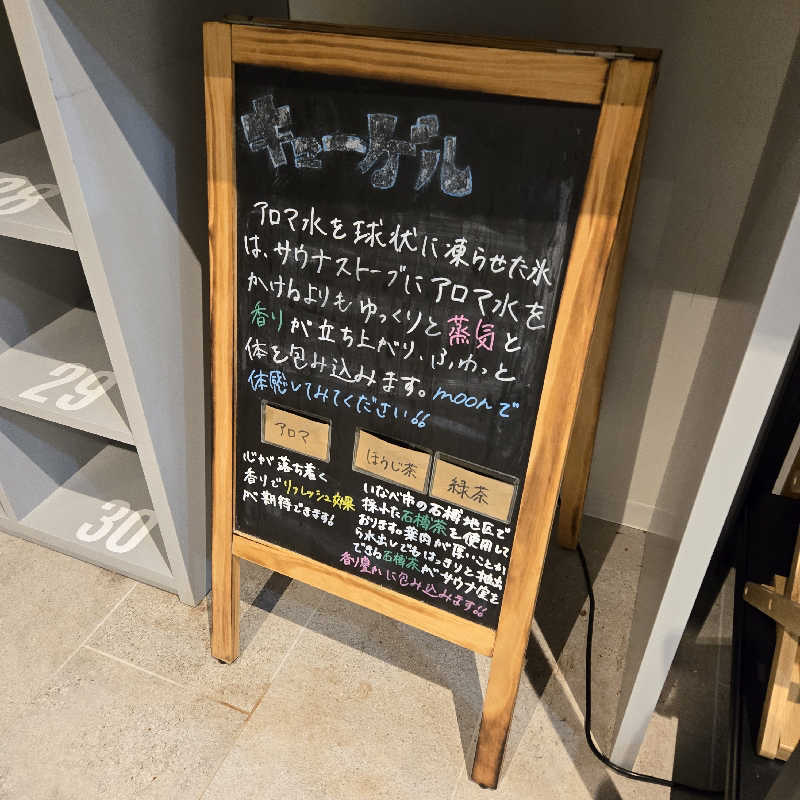 キューゲル
アロマ水を球状に凍らせた氷
は、サウナストーブにアロマ水を
かけるよりもゆっくりと蒸気と
香りが立ち上がり、ふわっと
体を包み込みます。moonで
体感してみてください!!
アロマ
心が落ち着く
香りでリフレッシュ効果
が期待できます!
ほうじ茶
緑茶
いなべ市の石榑地区で
採れた石榑茶を使用して
おります。葉肉が厚いことか
ら水出しでもはっきりと抽出
できる石榑茶がサウナ室を
香り豊かに包み込みます!!
28
29
30